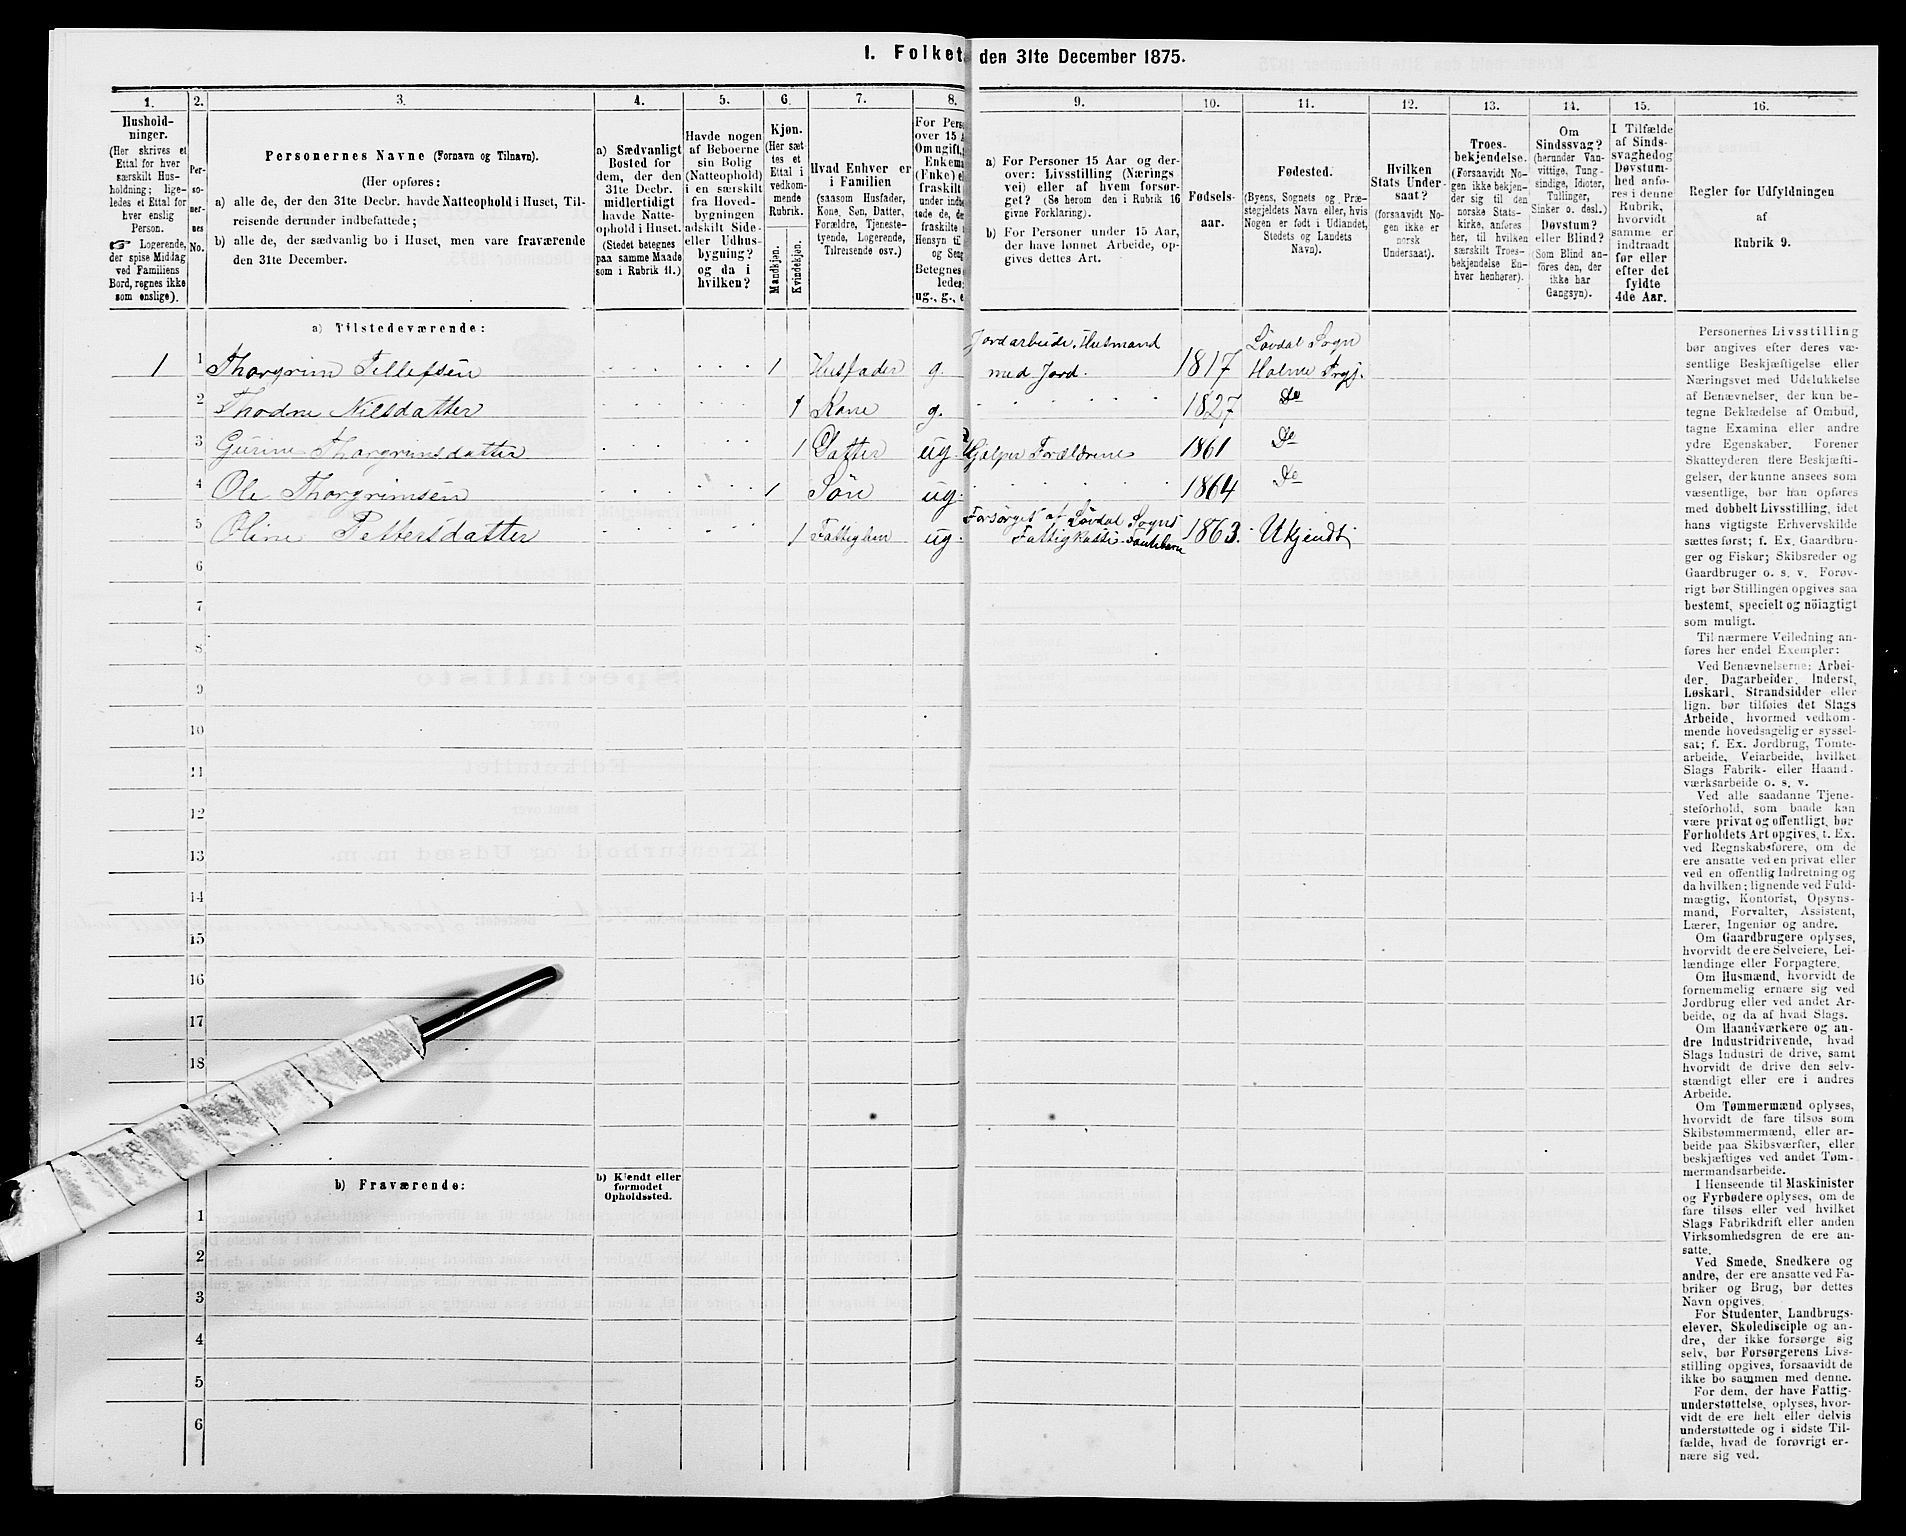 I. Folket
den 31te December 1875.
1.
2.
3.
4.
5.
6.
7.
8.
9.
10.
11.
12.
13.
14.
15.
16.
Hushold-
ninger.
(Her skrives et
Ettal for hver
særskilt Hus-
holdning; lige-
ledes et Ettal for
hver enslig
Person.
☞ Logerende,
der spise Middag
ved Familiens
Bord, regnes ikke
som enslige).
Per-
so-
ner-
nes
No.
Personernes Navne (Fornavn og Tilnavn).
(Her opføres:
a) alle de, der den 31te Decbr. havde Natteophold i Huset, Til-
reisende derunder indbefattede;
b) alle de, der sædvanlig bo i Huset, men vare fraværende
den 31te December.
a) Sædvanligt
Bosted for
dem, der den
31te Decbr.
midlertidigt
havde Natte-
ophold i Huset.
(Stedet betegnes
paa samme Maade
som i Rubrik 11.)
Havde nogen
af Beboerne
sin Bolig
(Natteophold)
i en særskilt
fra Hoved-
bygningen
adskilt Side-
eller Udhus-
bygning?
og da i
hvilken?
Kjøn.
(Her sæt
tes et
Ettal i
vedkom-
mende
Rubrik.
Mandkjøn.
Kvindekjøn.
Hvad Enhver er
i Familien
(saasom Husfader,
Kone, Søn, Datter,
Forældre, Tjeneste-
tyende, Logerende,
Tilreisende osv.)
For Pers
over 15 A
Om ugift,
Enkema
(Enke) e
fraskilt
under indb
tede de, de
fraskilte
Hensyn til
og Seng
Betegnes
ledes:
ug., g., e
a) For Personer 15 Aar og der-
over: Livsstilling (Nærings
vei) eller af hvem forsør-
get? (Se herom den i Rubrik 16
givne Forklaring).
b) For Personer under 15 Aar,
der have lønnet Arbeide, op-
gives dettes Art.
Fødsels-
aar.
Fødested.
(Byens, Sognets og Præ-
stegjeldets Navn eller, hvis
Nogen er født i Udlandet,
Stedets og Landets
Navn).
Hvilken
Stats Under-
saat?
(forsaavidt No-
gen ikke er
norsk
Undersaat).
Troes-
bekjendelse.
(Forsaavidt No-
gen ikke bekjen-
der sig til den
norske Stats-
kirke, anføres
her, til hvilken
særskilt Troes-
bekjendelse En-
hver henhører).
Om
Sindssvag?
(herunder Van-
vittige, Tung-
sindige, Idioter,
Tullinger,
Sinker o. desl.)
Døvstum?
eller Blind?
(Som Blind an-
føres den, der
ikke har
Gangsyn).
I Tilfælde
af Sinds-
svaghedog
Døvstum-
hed anfø-
res i denne
Rubrik,
hvorvidt
samme er
indtraadt
før eller
efter det
fyldte
4de Aar.
Regler for Udfyldningen
af
Rubrik 9.
a) Tilstedeværende:
1 1 Thorgrim Tellefsen 1 Husfader g. Jordarbeide, Husmand med Jord. 1817 Løvdal Sogn Holme Prgj.
2 Thodne Nilsdatter 1 Kone g. 1827 Do
3 Gurine Thorgrimsdatter 1 Datter ug. Hjælper Forældrene 1861 Do
4 Ole Thorgrimsen 1 Søn ug. 1864 Do
5 Oline Pettersdatter 1 ug. Forsørges af Løvdal Sogns 1863. Ukjendt
6
7
8
9
10
11
12
13
14
15
16
17
18
b) Fraværende:
b) Kjendt eller
formodet
Opholdssted.
1
2
3
4
5
6
Personernes Livsstilling
bør angives efter deres væ-
sentlige Beskjæftigelse eller
Næringsvei med Udelukkelse
af Benævnelser, der kun be-
tegne Beklædelse af Ombud,
tagne Examina eller andre
ydre Egenskaber. Forener
Skatteyderen flere Beskjæfti-
gelser, der kunne ansees som
væsentlige, bør han opføres
med dobbelt Livsstilling, idet
hans vigtigste Erhvervskilde
sættes først; f. Ex. Gaardbru-
ger og Fisker; Skibsreder og
Gaardbruger o. s. v. Forøv-
rigt bør Stillingen opgives saa
bestemt, specielt og nöiagtigt
som muligt.
Til nærmere Veiledning an-
føres her endel Exempler:
Ved Benævnelserne: Arbei-
der, Dagarbeider, Inderst,
Løskarl, Strandsidder eller
lign. bør tilføies det Slags
Arbeide, hvormed vedkom-
mende hovedsagelig er syssel-
sat; f. Ex. Jordbrug, Tomte-
arbeide, Veiarbeide, hvilket
Slags Fabrik- eller Haand-
værksarbeide o. s. v.
Ved alle saadanne Tjene-
steforhold, som baade kan
være privat og offentligt, bør
Forholdets Art opgives, t. Ex.
ved Regnskabsførere, om de
ere ansatte ved en privat eller
ved en offentlig Indretning og
da hvilken; lignende ved Fuld-
mægtig, Kontorist, Opsyns-
mand, Forvalter, Assistent,
Lærer, Ingeniør og andre.
Om Gaardbrugere oplyses,
hvorvidt de ere Selveiere, Lei-
lændinge eller Forpagtere.
Om Husmænd, hvorvidt de
fornemmelig ernære sig ved
Jordbrug eller ved andet Ar-
beide, og da af hvad Slags.
Om Haandværkere og an-
dre Industridrivende, hvad
Slags Industri de drive, samt
hvorvidt de drive den selv-
stændigt eller ere i andres
Arbeide.
Om Tømmermænd oplyses,
hvorvidt de fare tilsøs som
Skibstømmermænd, eller ar-
beide paa Skibsværfter, eller
beskjæftiges ved andet Tøm-
mermandsarbeide.
I Henseende til Maskinister
og Fyrbødere oplyses, om de
fare tilsøs eller ved hvilket
Slags Fabrikdrift eller anden
Virksomhedsgren de ere an-
satte.
Ved Smede, Snedkere og
andre, der ere ansatte ved Fa-
briker og Brug, bør dettes
Navn opgives.
For Studenter, Landbrugs-
elever, Skoledisciple og an-
dre, der ikke forsørge sig
selv, bør Forsørgerens Livs-
stilling opgives, forsaavidt de
ikke bo sammen med denne.
For dem, der have Fattig-
understøttelse, oplyses, hvor-
vidt de ere helt eller delvis
understøttede og i sidste Til-
fælde, hvad de forøvrigt er-
nære sig ved.